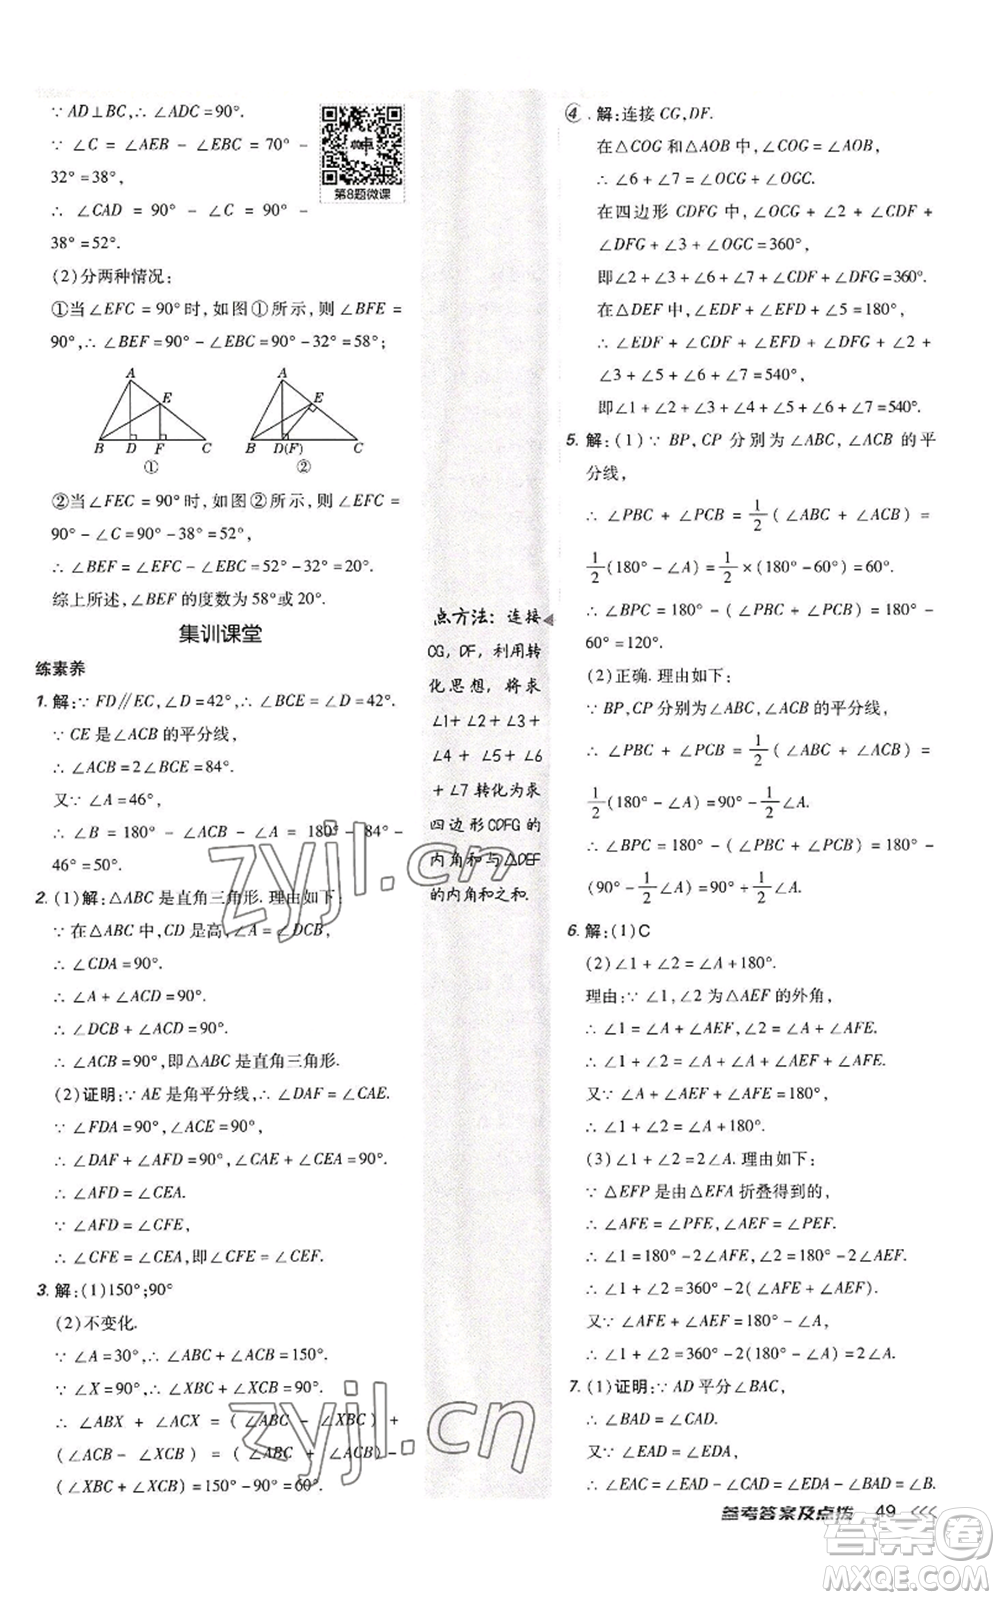 ∵ AD⊥BC,∴ ∠ADC = 90°.
∵ ∠C = ∠AEB - ∠EBC = 70° -
32° = 38°,
第8题微课
∴ ∠CAD = 90° - ∠C = 90° -
38° = 52°.
(2)分两种情况:
①当∠EFC = 90°时,如图①所示,则∠BFE =
90°,∴ ∠BEF = 90° - ∠EBC = 90° - 32° = 58°;
A
E
B D F C
①
A
E
B D(F) C
②
②当∠FEC = 90°时,如图②所示,则∠EFC =
90° - ∠C = 90° - 38° = 52°,
∴ ∠BEF = ∠EFC - ∠EBC = 52° - 32° = 20°.
综上所述,∠BEF的度数为58°或20°.
集训课堂
练素养
1. 解:∵ FD∥EC,∠D = 42°,∴ ∠BCE = ∠D = 42°.
∵ CE是∠ACB的平分线,
∴ ∠ACB = 2∠BCE = 84°.
又∵ ∠A = 46°,
∴ ∠B = 180° - ∠ACB - ∠A = 180° - 84° -
46° = 50°.
2. (1)解:△ABC是直角三角形. 理由如下:
∵ 在△ABC中,CD是高,∠A = ∠DCB,
∴ ∠CDA = 90°.
∴ ∠A + ∠ACD = 90°.
∴ ∠DCB + ∠ACD = 90°.
∴ ∠ACB = 90°,即△ABC是直角三角形.
(2)证明:∵ AE是角平分线,∴ ∠DAF = ∠CAE.
∵ ∠FDA = 90°,∠ACE = 90°,
∴ ∠DAF + ∠AFD = 90°,∠CAE + ∠CEA = 90°.
∴ ∠AFD = ∠CEA.
∵ ∠AFD = ∠CFE,
∴ ∠CFE = ∠CEA,即∠CFE = ∠CEF.
3. 解:(1)150°;90°
(2)不变化.
∵ ∠A = 30°,∴ ∠ABC + ∠ACB = 150°.
∵ ∠X = 90°,∴ ∠XBC + ∠XCB = 90°.
∴ ∠ABX + ∠ACX = (∠ABC - ∠XBC) +
(∠ACB - ∠XCB) = (∠ABC + ∠ACB) -
(∠XBC + ∠XCB) = 150° - 90° = 60°.
点方法: 连接
CG,DF, 利用转
化思想, 将求
∠1+ ∠2 + ∠3 +
∠4 + ∠5 + ∠6
+ ∠7转化为求
四边形CDFG的
内角和与△DEF
的内角和之和.
④. 解:连接CG,DF.
在△COG和△AOB中,∠COG = ∠AOB,
∴ ∠6 + ∠7 = ∠OCG + ∠OGC.
在四边形CDFG中,∠OCG + ∠2 + ∠CDF +
∠DFG + ∠3 + ∠OGC = 360°,
即∠6+∠7+∠2+∠CDF+∠DFG+∠3=360°.
在△DEF中,∠EDF + ∠EFD + ∠5 = 180°,
∴ ∠EDF + ∠CDF + ∠EFD + ∠DFG + ∠2 +
∠3 + ∠5 + ∠6 + ∠7 = 540°,
即∠1+∠2+∠3+∠4+∠5+∠6+∠7=540°.
5. 解:(1)∵ BP,CP分别为∠ABC,∠ACB的平
分线,
∴ ∠PBC + ∠PCB = 1/2(∠ABC + ∠ACB) =
1/2(180° - ∠A) = 1/2×(180° - 60°) = 60°.
∴ ∠BPC = 180° - (∠PBC + ∠PCB) = 180° -
60° = 120°.
(2)正确. 理由如下:
∵ BP,CP分别为∠ABC,∠ACB的平分线,
∴ ∠PBC + ∠PCB = 1/2(∠ABC + ∠ACB) =
1/2(180° - ∠A) = 90° - 1/2∠A.
∴ ∠BPC = 180° - (∠PBC + ∠PCB) = 180° -
(90° - 1/2∠A) = 90° + 1/2∠A.
6. 解:(1)C
(2)∠1 + ∠2 = ∠A + 180°.
理由:∵ ∠1,∠2为△AEF的外角,
∴ ∠1 = ∠A + ∠AEF,∠2 = ∠A + ∠AFE.
又∵ ∠A + ∠AEF + ∠AFE = 180°,
∴ ∠1 + ∠2 = ∠A + 180°.
(3)∠1 + ∠2 = 2∠A. 理由如下:
∵ △EFP是由△EFA折叠得到的,
∴ ∠AFE = ∠PFE,∠AEF = ∠PEF.
∴ ∠1 = 180° - 2∠AEF,∠2 = 180° - 2∠AFE.
∴ ∠1 + ∠2 = 360° - 2(∠AFE + ∠AEF).
又∵ ∠A + ∠AFE + ∠AEF = 180°,
∴ ∠1 + ∠2 = 360° - 2(180° - ∠A) = 2∠A.
7. (1)证明:∵ AD平分∠BAC,
∴ ∠BAD = ∠CAD.
又∵ ∠EAD = ∠EDA,
∴ ∠EAC = ∠EAD - ∠CAD = ∠EDA - ∠BAD = ∠B.
参考答案及点拨 49
zyjl.cn
zyjl.cn
答案圈
MXQE.COM